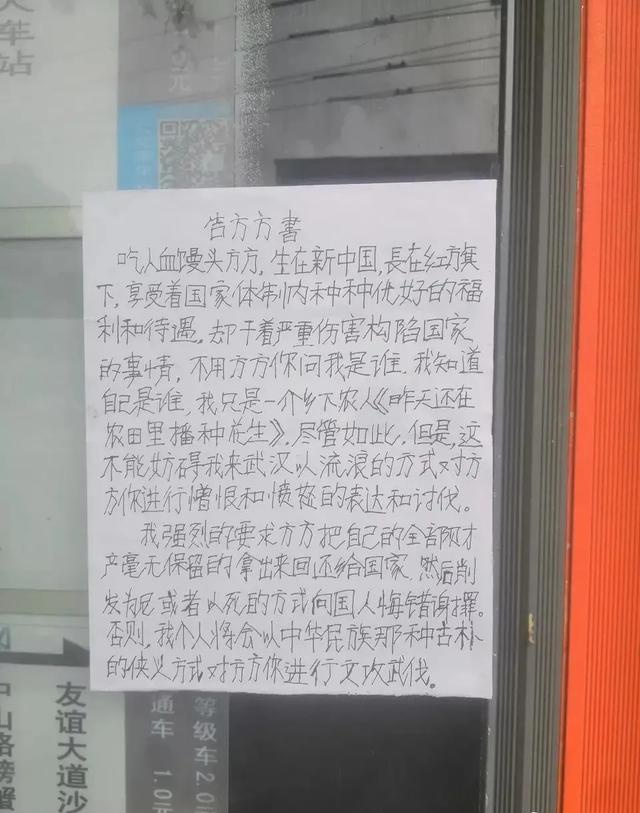 火车站
元
告方方書
吃人血馒头方方,生在新中国,長在红旗
下,享受着国家体制内种种优好的福
利和待遇,却干着严重伤害构陷国家
的事情,不用方方你问我是谁,我知道
自己是谁,我只是一个乡下农人《昨天还在
农田里播种花生》,尽管如此,但是,这
不能妨碍我来武汉以流浪的方式对方
方你进行憎恨和愤怒的表达和讨伐。
我强烈的要求方方把自己的全部财
产毫无保留的拿出来回还给国家,然后削
发为尼或者以死的方式向国人悔错谢罪。
否则,我个人将会以中华民族那种古朴
的侠义方式对方方你进行文攻武伐。
中山路螃蟹
友谊大道沙
通车 1.0元
等级车2.0元